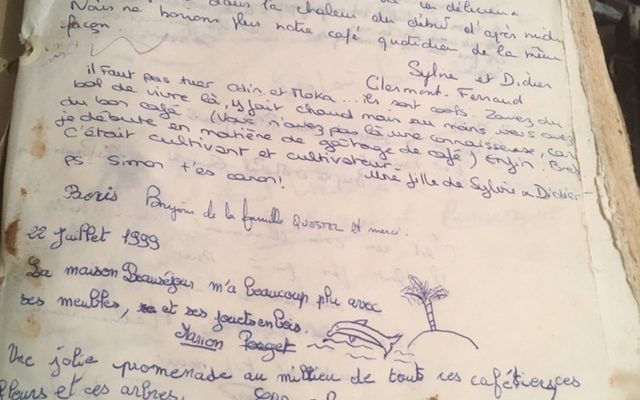 dans la chaleur du début d'après midi
Nous ne boirons plus notre café quotidien de la même
façon
Sylvie et Didier
Clermont. Ferrand
il faut pas tuer Odin et Moka... ils sont cools. Zavez du
bol de vivre là, y fait chaud mais au moins vous avez
du bon café (Vous n'avez pas là une connaisseuse, car
je débute en matière de goûtage de café) Enfin. Bref
C'était cultivant et cultivateur.
une fille de Sylvie & Didier-
PS: Simon t'es canon!
Boris Bonjour de la famille QUESTEL et merci.
22 Juillet 1999
La maison Beauséjour m'a beaucoup plu avec
ses meubles, et ses jouets en bois.
Marion Pouget
Une jolie promenade au milieu de tout ces cafétiers, ces
fleurs et ces arbres.